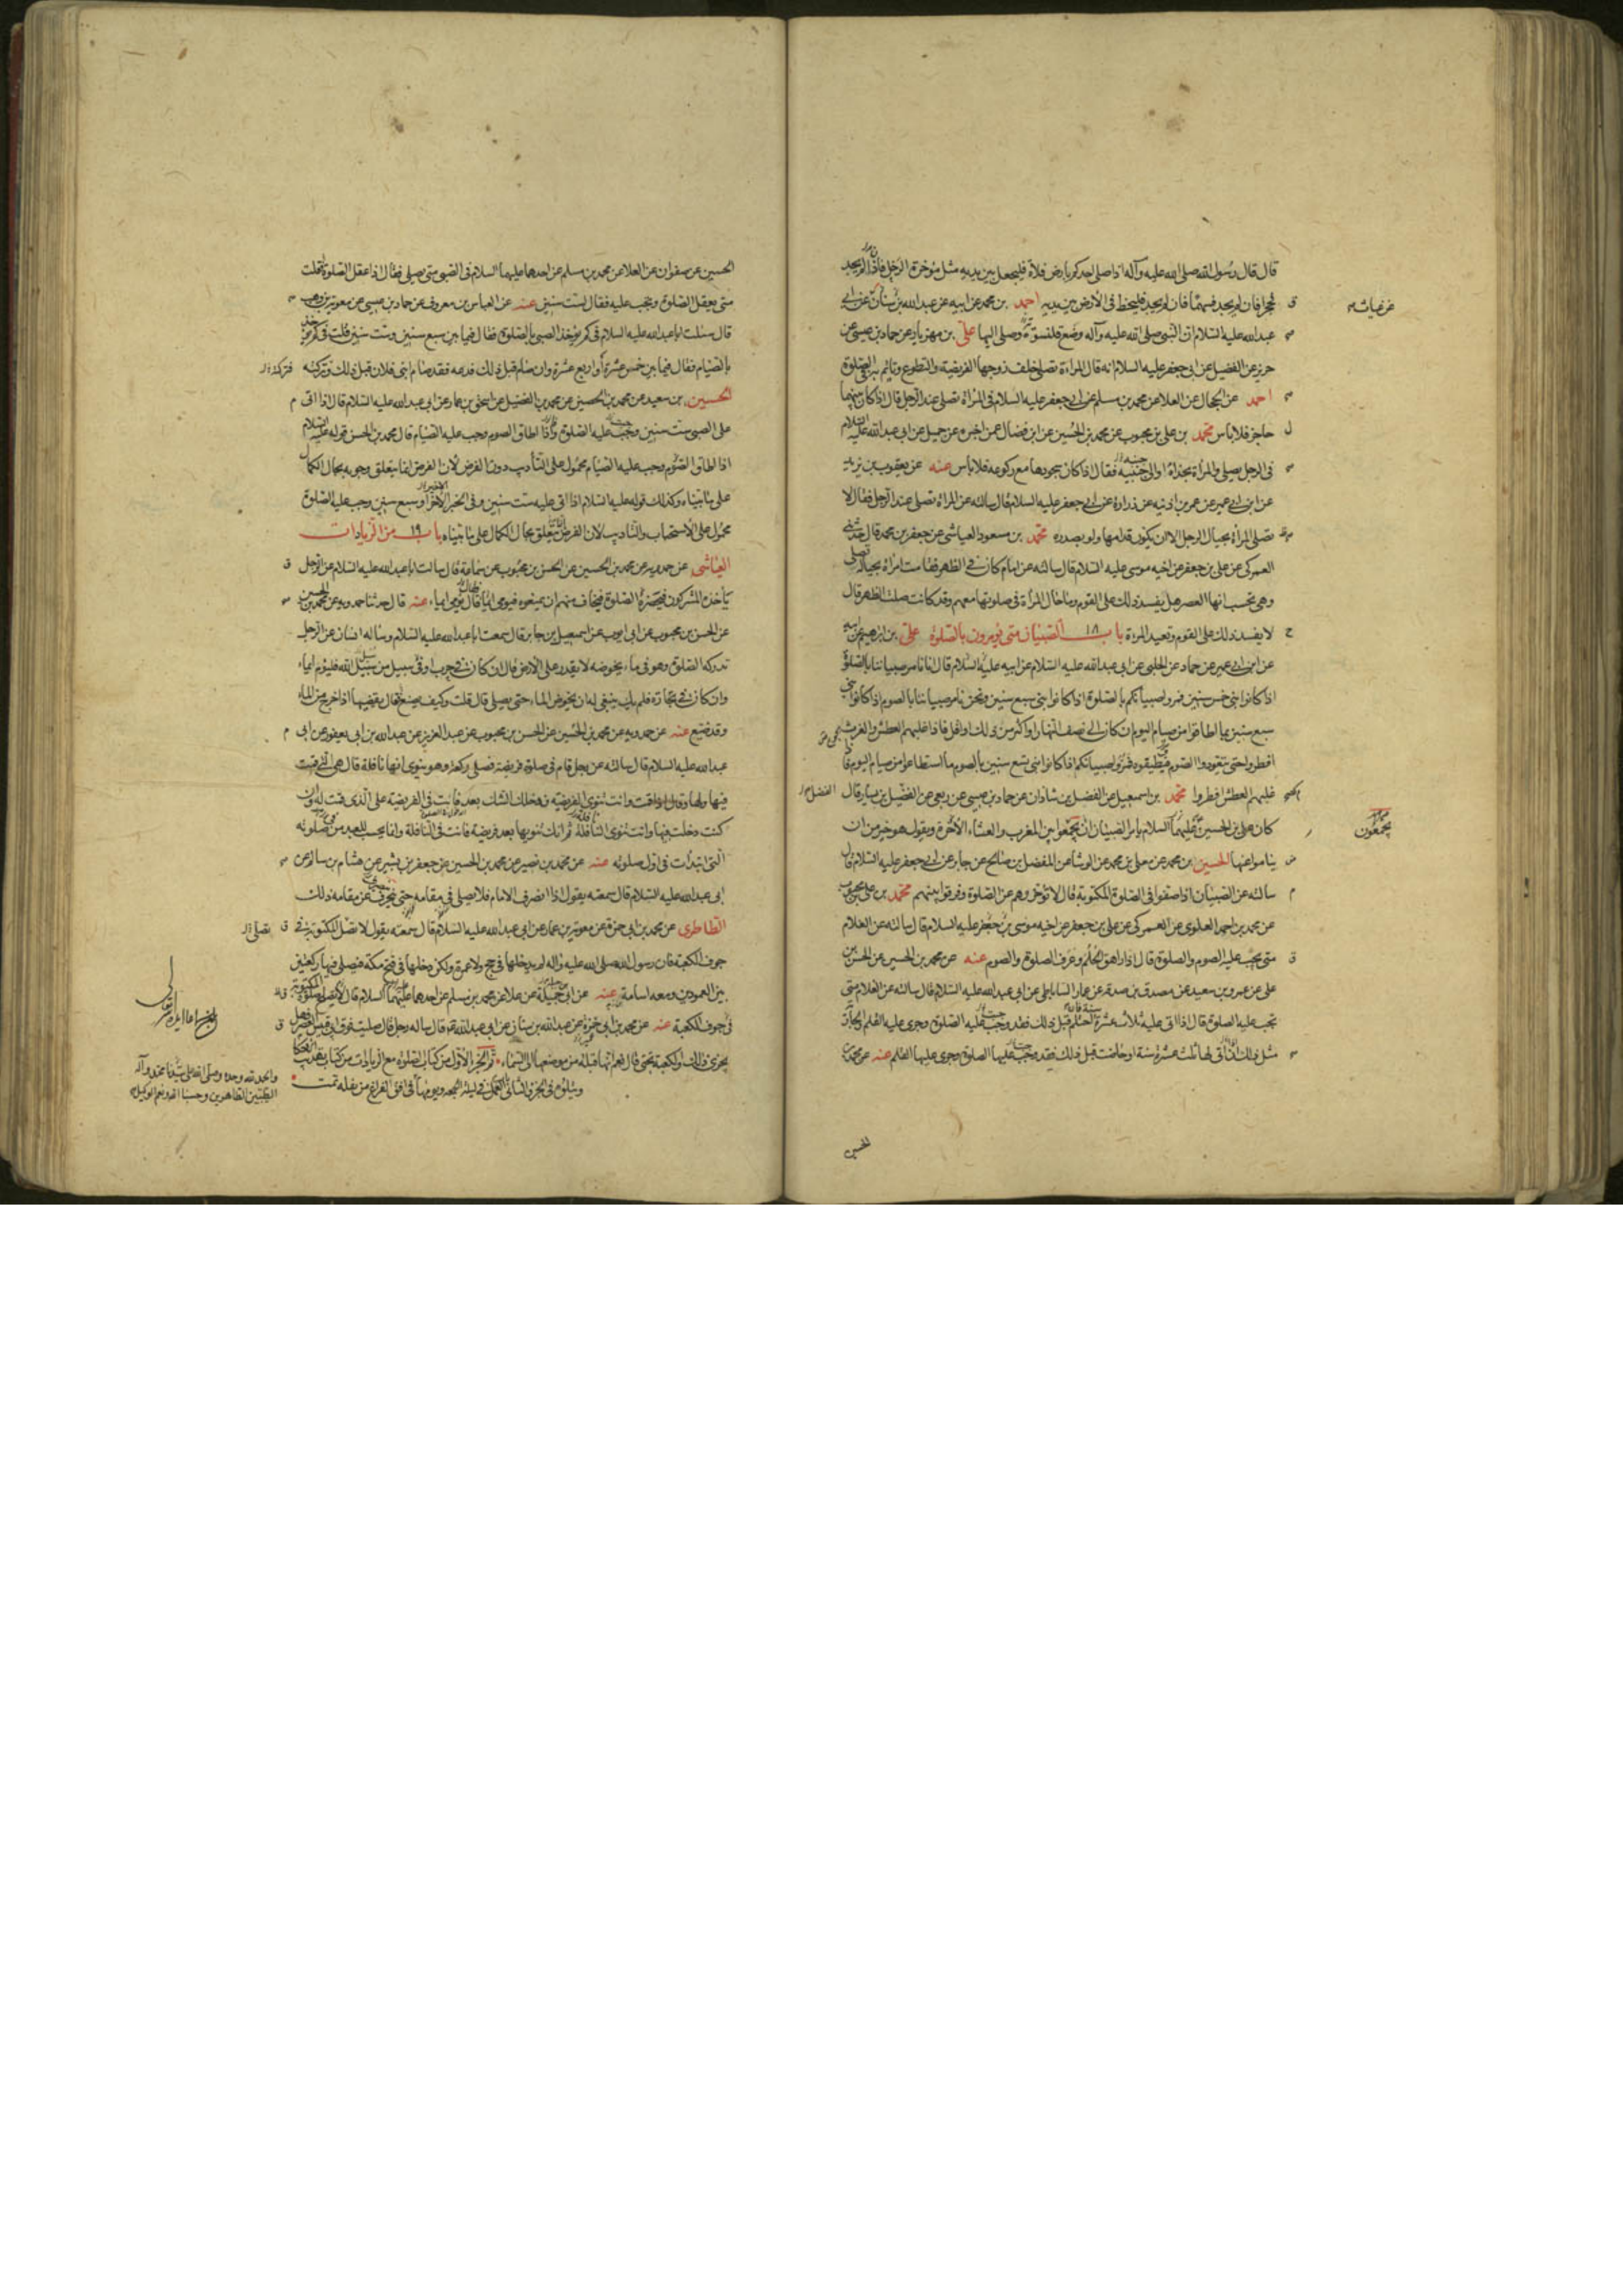 قال قال رسول الله صلى الله عليه وآله اذا صلى احدكم بارض فلاة فليجعل بين يديه مثل مؤخرة الرحل فان لم يجد
فحجرا فان لم يجد فسهما فان لم يجد فليخط في الارض بين يديه احمد بن محمد عن ابيه عن عبد الله بن عن ابي
عبد الله عليه السلام ان النبي صلى الله عليه وآله وضع قلنسوة وصلى اليها علي بن مهزيار عن حماد بن عيسى عن
حريز عن الفضيل عن ابي جعفر عليه السلام انه قال المراءة تصلي خلف زوجها الفريضة والتطوع وتاتم به في الصلوة
احمد عن الحجال عن العلا عن محمد بن مسلم عن ابي جعفر عليه السلام في المرأة تصلي عند الرجل قال اذا كان بينهما
حاجز فلا باس محمد بن علي بن محبوب عن محمد بن الحسين عن ابن فضال عمن اخبره عن جميل عن ابي عبد الله عليه السلام
في الرجل يصلي والمرأة بحذاه او الى جنبيه فقال اذا كان سجودها مع ركوعه فلا باس عنه عن يعقوب بن يزيد
عن ابن ابي عمير عن عمر بن اذينه عن زرارة عن ابي جعفر عليه السلام قال سالته عن المراة تصلي عند الرجل فقال لا
تصلي المرأة بحيال الرجل الا ان يكون قدامها ولو بصدره محمد بن مسعود العياشي عن جعفر بن محمد قال حدثني
العمركي عن علي بن جعفر عن اخيه موسى عليه السلام قال سالته عن امام كان في الظهر فقامت امراة بحياله تصلي
وهي تحسب انها العصر هل يفسد ذلك على القوم وما حال المرأة في صلوتها معهم وقد كانت صلت الظهر قال
لا يفسد ذلك على القوم وتعيد المرءة باب ١٨ الصبيان متى يؤمرون بالصلوة علي بن ابرهيم عن ابيه
عن ابن ابي عمير عن حماد عن الحلبي عن ابي عبد الله عليه السلام عن ابيه عليه السلام قال انا نامر صبياننا بالصلوة
اذا كانوا بني خمس سنين فمروا صبيانكم بالصلوة اذا كانوا بني سبع سنين ونحن نامر صبياننا بالصوم اذا كانوا بني
سبع سنين بما اطاقوا من صيام اليوم ان كان الى نصف النهار او اكثر من ذلك او اقل فاذا غلبهم العطش والغرث
افطروا حتى يتعودوا الصوم ويطيقوه فمروا صبيانكم اذا كانوا بني تسع سنين بالصوم ما استطاعوا من صيام اليوم فاذا
غلبهم العطش افطروا محمد بن اسمعيل عن الفضل بن شاذان عن حماد بن عيسى عن ربعي عن الفضيل بن يسار قال
كان علي بن الحسين عليهما السلام يامر الصبيان ان يجمعوا بين المغرب والعشاء الآخرة ويقول هو خير من ان
يناموا عنها الحسين بن محمد عن معلى بن محمد عن الوشا عن المفضل بن صالح عن جابر عن ابي جعفر عليه السلام قال
سالته عن الصبيان اذا صفوا في الصلوة المكتوبة قال لا تؤخروهم عن الصلوة وفرقوا بينهم محمد بن علي بن محبوب
عن محمد بن احمد العلوي عن العمركي عن علي بن جعفر عن اخيه موسى بن جعفر عليه السلام قال سالته عن الغلام
متى يجب عليه الصوم والصلوة قال اذا راهق الحلم وعرف الصلوة والصوم عنه عن محمد بن الحسين عن الحسن بن
علي عن عمرو بن سعيد عن مصدق بن صدقه عن عمار الساباطي عن ابي عبد الله عليه السلام قال سالته عن الغلام متى
تجب عليه الصلوة قال اذا اتى عليه ثلاث عشرة سنة فان احتلم قبل ذلك فقد وجب عليه الصلوة وجرى عليه القلم والجارية
مثل ذلك اذا اتى لها ثلث عشرة سنة او حاضت قبل ذلك فقد وجب عليها الصلوة وجرى عليها القلم عنه عن محمد بن
الحسين
عن غياث
يجمعون
الحسين عن صفوان عن العلا عن محمد بن مسلم عن احدهما عليهما السلام في الصبي متى يصلي فقال اذا عقل الصلوة قلت
متى يعقل الصلوة وتجب عليه فقال لست سنين عنه عن العباس بن معروف عن حماد بن عيسى عن معوية بن وهب
قال سئلت ابا عبد الله عليه السلام في كم يؤخذ الصبي بالصلوة فقال فيما بين سبع سنين وست سنين قلت في كم يؤخذ
بالصيام فقال فيما بين خمس عشرة او اربع عشرة وان صام قبل ذلك فدعه فقد صام ابني فلان قبل ذلك وتركته
الحسين بن سعيد عن محمد بن الحصين عن محمد بن الفضيل عن اسحق بن عمار عن ابي عبد الله عليه السلام قال اذا اتى
على الصبي ست سنين وجب عليه الصلوة واذا اطاق الصوم وجب عليه الصيام قال محمد بن الحسن قوله عليه السلام
اذا اطاق الصوم وجب عليه الصيام محمول على التأديب دون الفرض لان الفرض انما يتعلق وجوبه بحال الكمال
على ما بيناه وكذلك قوله عليه السلام اذا اتى عليه ست سنين وفي الخبر الاخر او سبع سنين وجب عليه الصلوة
محمول على الاستحباب والتاديب لان الفرض يتعلق بحال الكمال على ما بيناه باب ١٩ من الزيادات
العياشي عن حمدويه عن محمد بن الحسين عن الحسن بن محبوب عن سماعة قال سالت ابا عبد الله عليه السلام عن الرجل
يأخذه المشركون فتحضره الصلوة فيخاف منهم ان يمنعوه فيومي ايماء قال يومي ايماء عنه قال حدثنا حمدويه عن محمد بن الحسين
عن الحسن بن محبوب عن ابي ايوب عن اسمعيل بن جابر قال سمعت ابا عبد الله عليه السلام وساله انسان عن الرجل
تدركه الصلوة وهو في ماء يخوضه لا يقدر على الارض قال ان كان في حرب او في سبيل من سبيل الله فليوم ايماء
وان كان في تجارة فلم يك ينبغي له ان يخوض الماء حتى يصلي قال قلت وكيف يصنع قال يقضيها اذا خرج من الماء
وقد ضيع عنه عن حمدويه عن محمد بن الحسين عن الحسن بن محبوب عن عبد العزيز عن عبد الله بن ابي يعفور عن ابي
عبد الله عليه السلام قال سالته عن رجل قام في صلوة فريضة فصلى ركعة وهو ينوي انها نافلة قال هي التي قمت
فيها ولها وقال اذا قمت وانت تنوي الفريضة فدخلك الشك بعد فانت في الفريضة على الذي قمت له وان
كنت دخلت فيها وانت تنوي النافلة ثم انك تنويها بعد فريضة فانت في النافلة وانما يحسب للعبد من صلوته
التي ابتدأت في اول صلوته عنه عن محمد بن نصير عن محمد بن الحسين عن جعفر بن بشير عن هشام بن سالم عن
ابي عبد الله عليه السلام قال سمعته يقول اذا انصرف الامام فلا يصلي في مقامه حتى ينحرف عن مقامه ذلك
الطاطري عن محمد بن ابي حمزة عن معوية بن عمار عن ابي عبد الله عليه السلام قال سمعته يقول لا تصل المكتوبة في
جوف الكعبة فان رسول الله صلى الله عليه وآله لم يدخلها في حج ولا عمرة ولكن دخلها في فتح مكة فصلى فيها ركعتين
بين العمودين ومعه اسامة عنه عن ابي جميلة عن علا عن محمد بن مسلم عن احدهما عليهما السلام قال لا تصلح صلوة المكتوبة
في جوف الكعبة عنه عن محمد بن ابي حمزة عن عبد الله بن سنان عن ابي عبد الله ع قال ساله رجل قال صليت فوق ابي قبيس العصر فهل
يجزي ذلك والكعبة تحتي قال نعم انها قبلة من موضعها الى السماء تم الجزء الاول من كتاب الصلوة مع الزيادات من كتاب تهذيب الاحكام
ويتلوه في الجزء الثاني العمل في ليلة الجمعة ويومها اتفق الفراغ من نقله تمت
والحمد لله وحده وصلى الله على سيدنا محمد وآله
الطيبين الطاهرين وحسبنا الله ونعم الوكيل